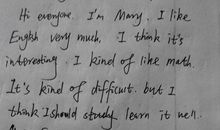 Hi everyone. I'm Mary. I like
English very much. I think it's
interesting. I kind of like math.
It's kind of difficult. but I
think I should study learn it well.